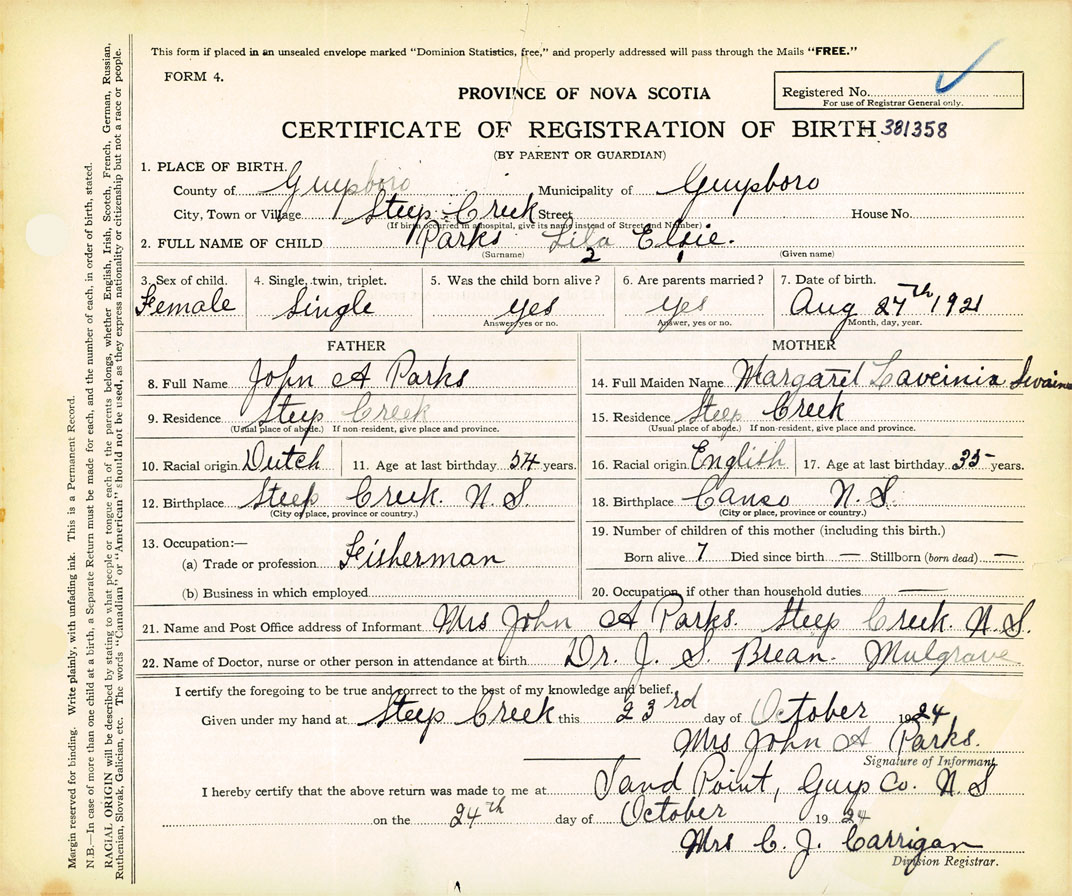 This form if placed in an unsealed envelope marked "Dominion Statistics, free," and properly addressed will pass through the Mails "FREE."
FORM 4.
Registered No.
For use of Registrar General only.
PROVINCE OF NOVA SCOTIA
CERTIFICATE OF REGISTRATION OF BIRTH 381358
(BY PARENT OR GUARDIAN)
1. PLACE OF BIRTH.
County of Guysboro Municipality of Guysboro
City, Town or Village Steep Creek Street House No.
(If birth occurred in a hospital, give its name instead of Street and Number)
2. FULL NAME OF CHILD Parks Lila Elsie.
(Surname) 2 1 (Given name)
3. Sex of child. 4. Single, twin, triplet. 5. Was the child born alive? 6. Are parents married? 7. Date of birth.
Female Single yes yes Aug 27th 1921
Answer, yes or no. Answer, yes or no. Month, day, year.
FATHER MOTHER
8. Full Name John A Parks
14. Full Maiden Name Margaret Laveinia
9. Residence Steep Creek
15. Residence Steep Creek
(Usual place of abode.) If non-resident, give place and province.
(Usual place of abode.) If non-resident, give place and province.
10. Racial origin Dutch 11. Age at last birthday 54 years.
16. Racial origin English 17. Age at last birthday 35 years.
12. Birthplace Steep Creek. N.S.
18. Birthplace Canso N.S.
(City or place, province or country.)
(City or place, province or country.)
13. Occupation:—
19. Number of children of this mother (including this birth.)
(a) Trade or profession Fisherman
Born alive 7 Died since birth — Stillborn (born dead) —
(b) Business in which employed
20. Occupation, if other than household duties —
21. Name and Post Office address of Informant Mrs John A Parks. Steep Creek. N.S.
22. Name of Doctor, nurse or other person in attendance at birth Dr. J. S. Brean. Mulgrave
I certify the foregoing to be true and correct to the best of my knowledge and belief.
Given under my hand at Steep Creek this 23rd day of October 1924
Mrs John A Parks.
Signature of Informant
I hereby certify that the above return was made to me at Sand Point, Guys Co. N.S
on the 24th day of October 1924
Mrs C. J. Carrigan
Division Registrar.
Margin reserved for binding. Write plainly, with unfading ink. This is a Permanent Record.
N.B.—In case of more than one child at a birth, a Separate Return must be made for each, and the number of each, in order of birth, stated.
RACIAL ORIGIN will be described by stating to what people or tongue each of the parents belongs, whether English, Irish, Scotch, French, German, Russian,
Ruthenian, Slovak, Galician, etc. The words "Canadian" or "American" should not be used, as they express nationality or citizenship but not a race or people.